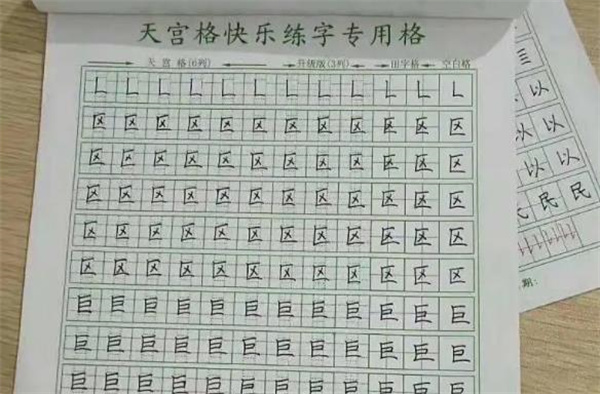 天宫格快乐练字专用格
天宫格(6列) 升级版(3列) 田字格 空白格
𠃊 𠃊 𠃊 𠃊 𠃊 𠃊 𠃊 𠃊 𠃊 𠃊 𠃊 𠃊
区 区 区 区 区 区 区 区 区 区 区 区
区 区 区 区 区 区 区 区 区 区 区 区
区 区 区 区 区 区 区 区 区 区 区 区
区 区 区 区 区 区 区 区 区 区 区 区
区 区 区 区 区 区 区 区 区 区 区 区
巨 巨 巨 巨 巨 巨 巨 巨 巨 巨 巨 巨
巨 巨 巨 巨 巨 巨 巨 巨 巨 巨 巨 巨
巨 巨 巨 巨 巨 巨 巨 巨 巨 巨 巨 巨
以
以 以
以 以
民 民
期: